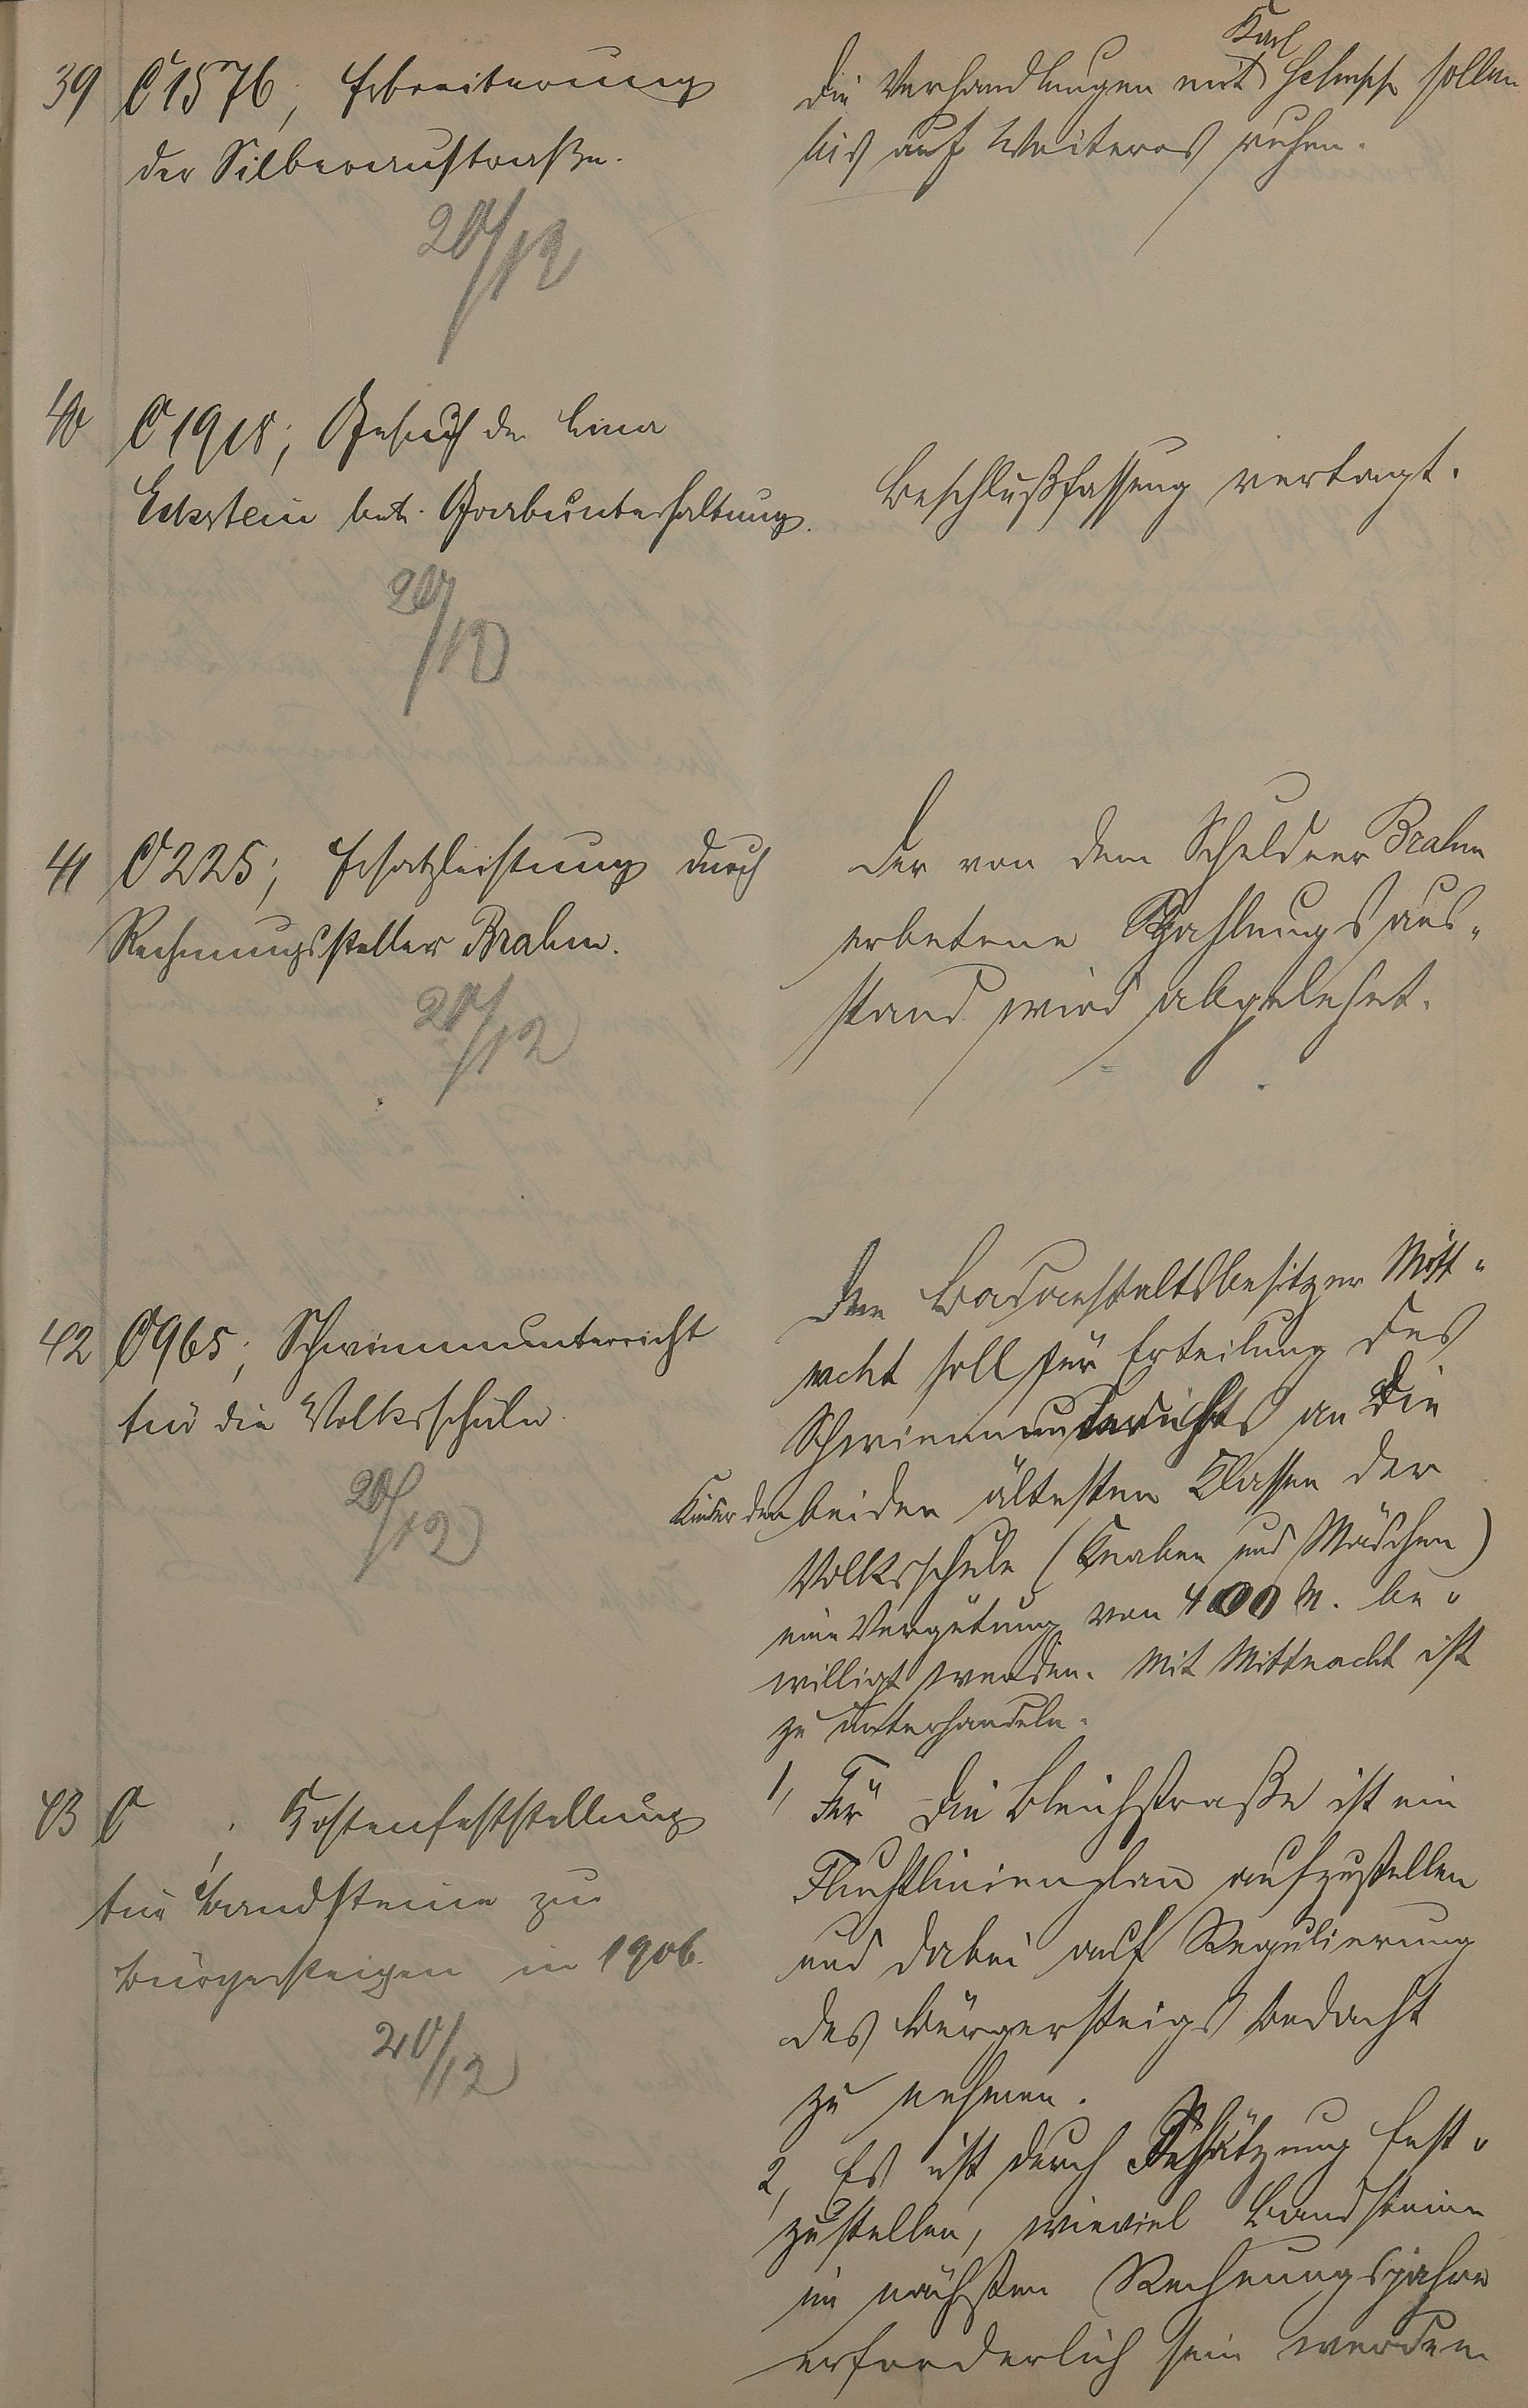 39 C 1576; Erbreiterung
der Silberaustraße.
20/12
Die Verhandlungen mit Karl sollen
bis auf Weiteres ruhen.
40 C 1918; Gesuch der Lina
Eckstein betr. Grabunterhaltung.
20/12
Beschlußfassung vertagt.
41 C 225; Ersatzleistung durch
Rechnungssteller Brahm.
20/12
Der von dem Schuldner Brahm
erbetene Zahlungsaus-
stand wird abgelehnt.
42 C 965; Schwimmunterricht
für die Volksschule.
20/12
Dem Badeanstaltsbesitzer Mitt-
nacht soll für Erteilung des
Schwimmunterrichts an die
Kinder der beiden ältesten Klassen der
Volksschule (Knaben und Mädchen)
eine Vergütung von 400 M. be-
willigt werden. Mit Mittnacht ist
zu unterhandeln.
43 C ; Kostenfeststellung
für Bandsteine zu
Bürgersteigen in 1906.
20/12
1, Für die Bleichstraße ist ein
Fluchtlinienplan aufzustellen
und dabei auf Regulierung
des Bürgersteigs Bedacht
zu nehmen.
2, Es ist durch Schätzung fest-
zustellen, wieviel Bandsteine
im nächsten Rechnungsjahre
erforderlich sein werden